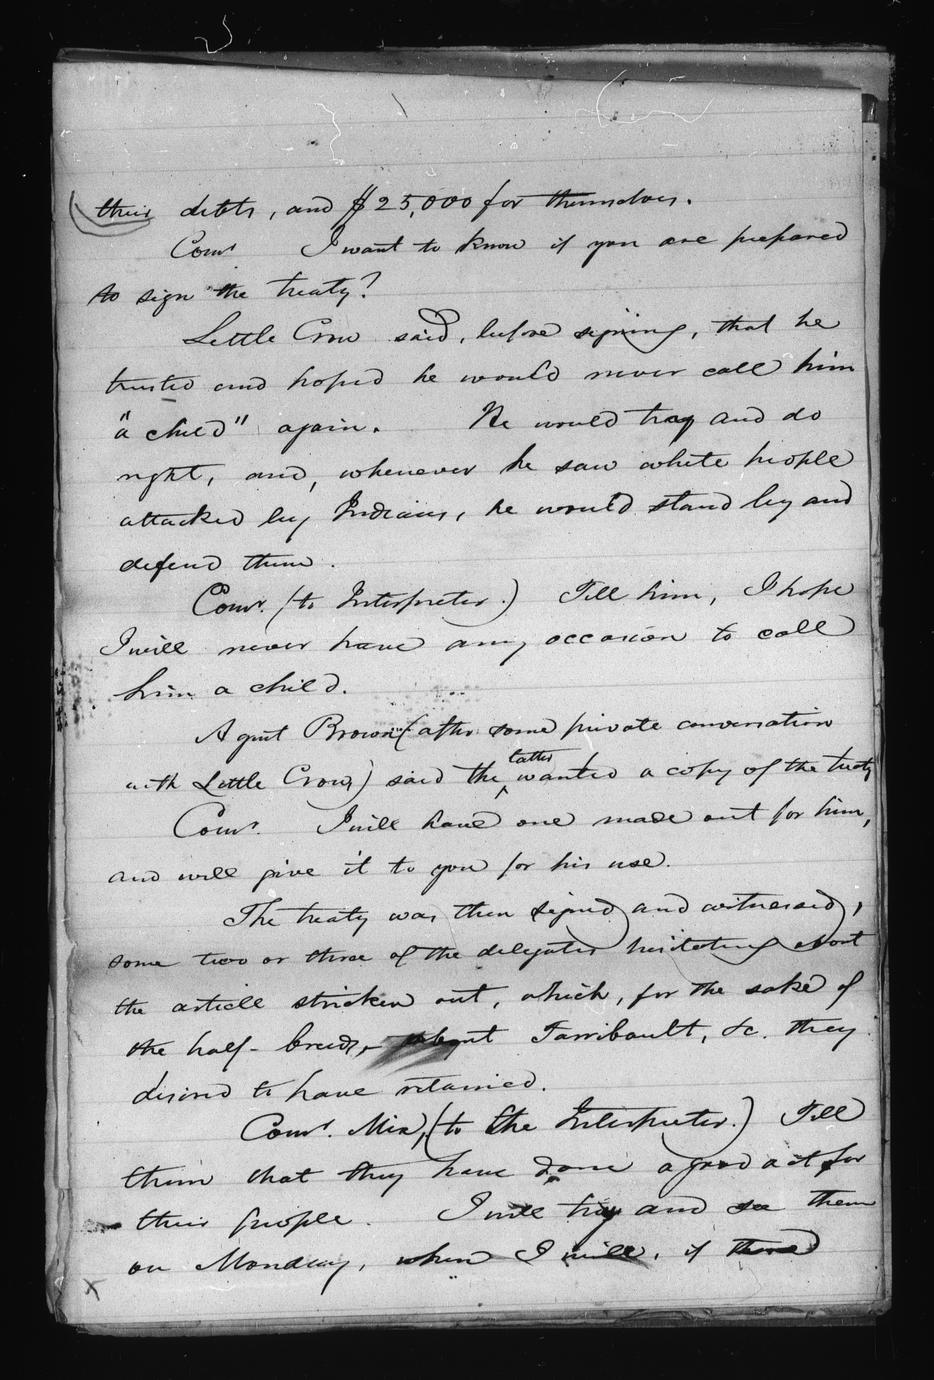 their debts, and $25,000 for themselves.
Comr I want to know if you are prepared
to sign the treaty?
Little Crow said, before signing, that he
trusted and hoped he would never call him
"a child" again. He would try and do
right, and, whenever he saw white people
attacked by Indians, he would stand by and
defend them.
Comr. (to Interpreter.) Tell him, I hope
I will never have any occasion to call
him a child.
Agent Brown (after some private conversation
with Little Crow,) said the latter wanted a copy of the treaty
Comr. I will have one made out for him,
and will give it to you for his use.
The treaty was then signed and witnessed,
some two or three of the delegates hesitating about
the article stricken out, which, for the sake of
the half-breeds, about Farribault, &c. they
desired to have retained.
Comr. Mix, (to the Interpreter.) Tell
them that they have done a good act for
their people. I will try and see them
on Monday, when I will, if